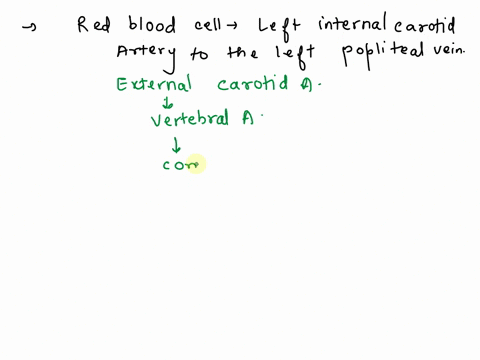 → Red blood cell → Left internal carotid
Artery to the left popliteal vein.
External carotid A.
↓
Vertebral A.
↓
cor